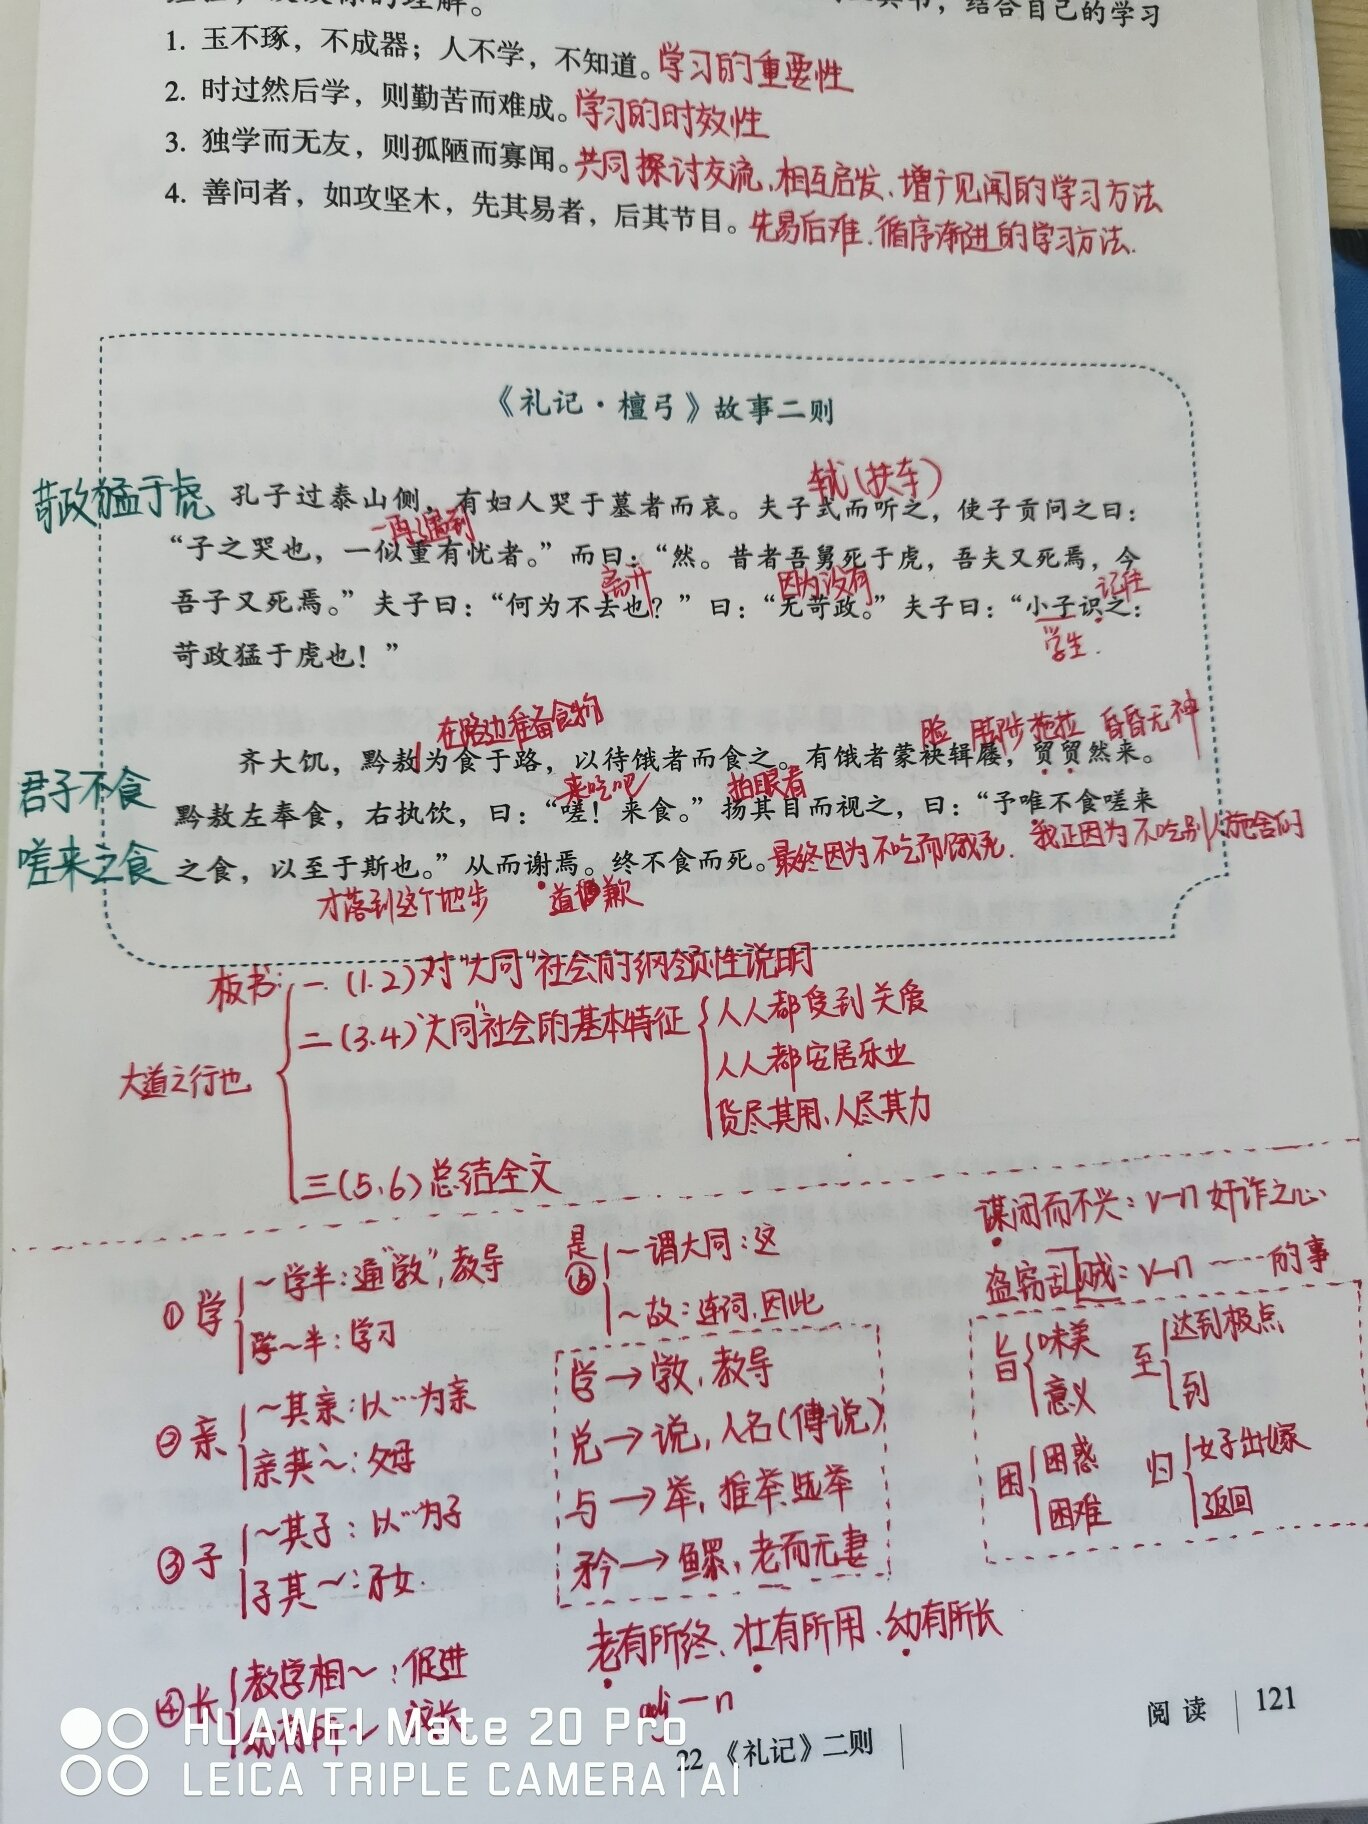 结合自己的学习
1. 玉不琢，不成器；人不学，不知道。学习的重要性
2. 时过然后学，则勤苦而难成。学习的时效性
3. 独学而无友，则孤陋而寡闻。共同探讨交流、相互启发、增广见闻的学习方法
4. 善问者，如攻坚木，先其易者，后其节目。先易后难、循序渐进的学习方法.
《礼记·檀弓》故事二则
轼(扶车)
苛政猛于虎
孔子过泰山侧，有妇人哭于墓者而哀。夫子式而听之，使子贡问之曰：
一再遇到
“子之哭也，一似重有忧者。”而曰：“然。昔者吾舅死于虎，吾夫又死焉，今
离开 因为没有 记住
吾子又死焉。”夫子曰：“何为不去也？”曰：“无苛政。”夫子曰：“小子识之：
学生.
苛政猛于虎也！”
在路边准备食物 脸 脚步拖拉 昏昏无神
齐大饥，黔敖为食于路，以待饿者而食之。有饿者蒙袂辑屦，贸贸然来。
君子不食
嗟来之食
来吃吧 抬眼看
黔敖左奉食，右执饮，曰：“嗟！来食。”扬其目而视之，曰：“予唯不食嗟来
之食，以至于斯也。”从而谢焉。终不食而死。最终因为不吃而饿死. 我正因为不吃别人施舍的
才落到这个地步 道歉
板书:
大道之行也
一. (1.2)对“大同”社会的纲领性说明
二(3.4)“大同”社会的基本特征
人人都受到关爱
人人都安居乐业
货尽其用、人尽其力
三(5、6)总结全文
谋闭而不兴：v—n 奸诈之心
盗窃乱贼：v—n ……的事
①学
～学半：通“敩”，教导
学～半：学习
②亲
～其亲：以…为亲
亲其～：父母
③子
～其子：以…为子
子其～：子女.
④长
教学相～：促进
幼有所～
是
⑤
～谓大同：这
～故：连词，因此
学→敩，教导
兑→说，人名(傅说)
与→举，推举选举
矜→鳏，老而无妻
旨
味美
意义
至
达到极点
到
困
困惑
困难
归
女子出嫁
返回
老有所终、壮有所用、幼有所长
adj—n
22 《礼记》二则
阅读 121
HUAWEI Mate 20 Pro
LEICA TRIPLE CAMERA | AI